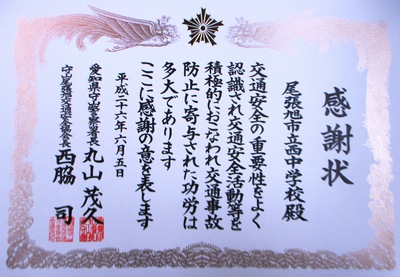 感謝状
尾張旭市立西中学校殿
交通安全の重要性をよく
認識され交通安全活動等を
積極的におこなわれ交通事故
防止に寄与された功労は
多大であります
ここに感謝の意を表します
平成二十六年六月五日
愛知県守山警察署長 丸山茂久
守山尾張旭交通安全協会長 西脇司